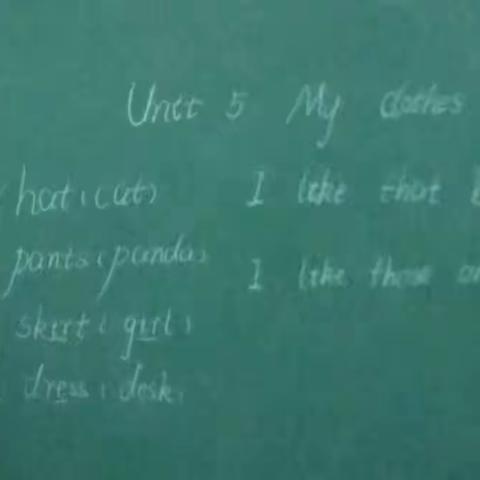 Unit 5 My clothes
hat (cat)
I like that
pants (panda)
I like those
skirt (girl)
dress (desk)